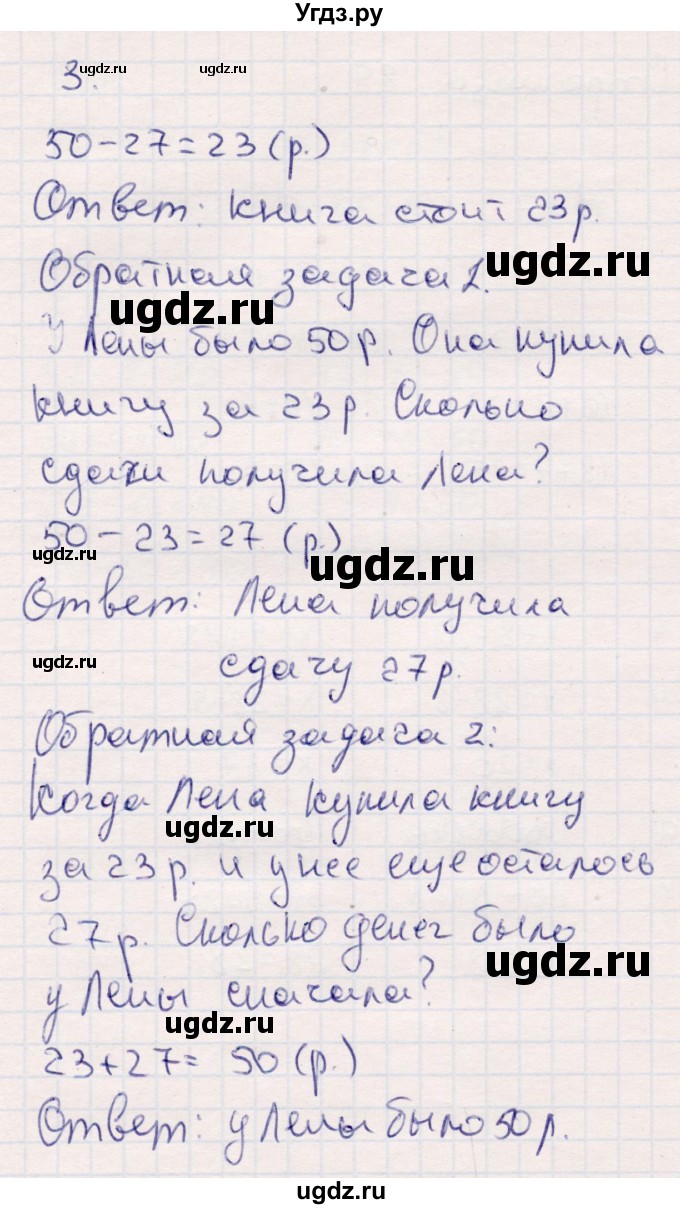 Угдз.ру
ugdz.ru ugdz.ru
3.
50-27=23 (р.)
Ответ: книга стоит 23р.
ugdz.ru
Обратная задача 1.
ugdz.ru
У Лены было 50р. Она купила
книгу за 23р. Сколько
сдачи получила Лена?
50-23=27 (р.)
ugdz.ru ugdz.ru
Ответ: Лена получила
ugdz.ru
сдачу 27р.
Обратная задача 2:
Когда Лена купила книгу
ugdz.ru
за 23р. и у нее еще осталось
27р. Сколько денег было
ugdz.ru
у Лены сначала?
ugdz.ru
23+27= 50 (р.)
Ответ: у Лены было 50р.
ugdz.ru